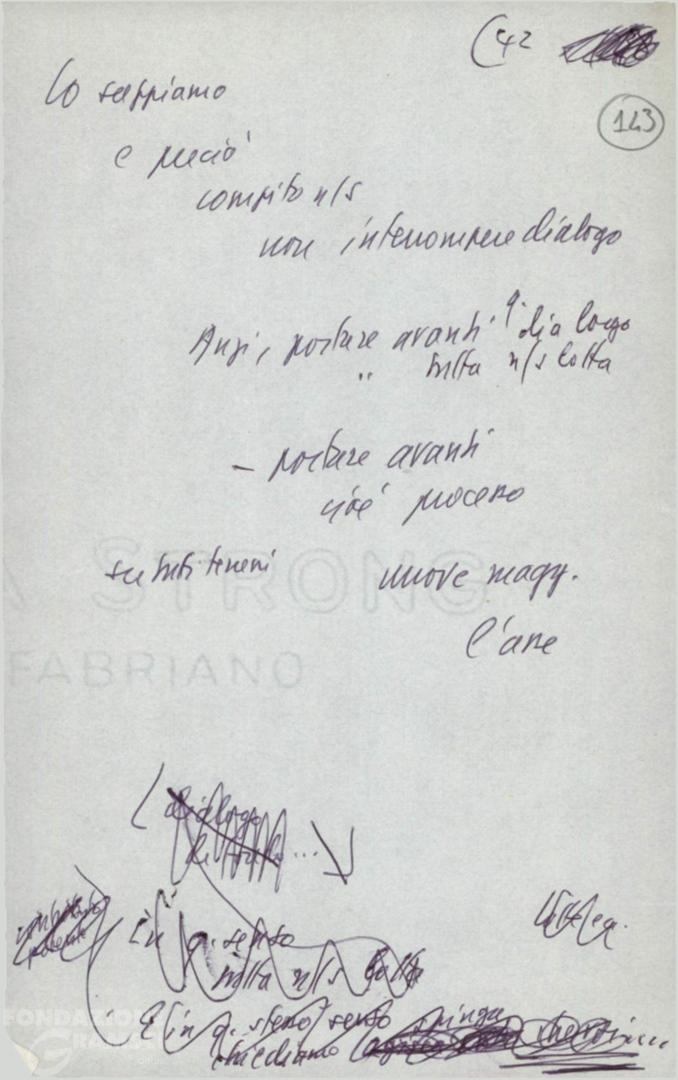 (42
123
Lo sappiamo
e perciò
compito n/s
non interrompere dialogo
Anzi, portare avanti q. dialogo
" sulla n/s lotta
– portare avanti
cioè processo
su tutti terreni nuove magg.
l'asse
(dialogo
In q. senso
sulla n/s lotta
E in q. stesso senso spinga
chiediamo
STRONG
FABRIANO
FONDAZIONE
GRAMSCI